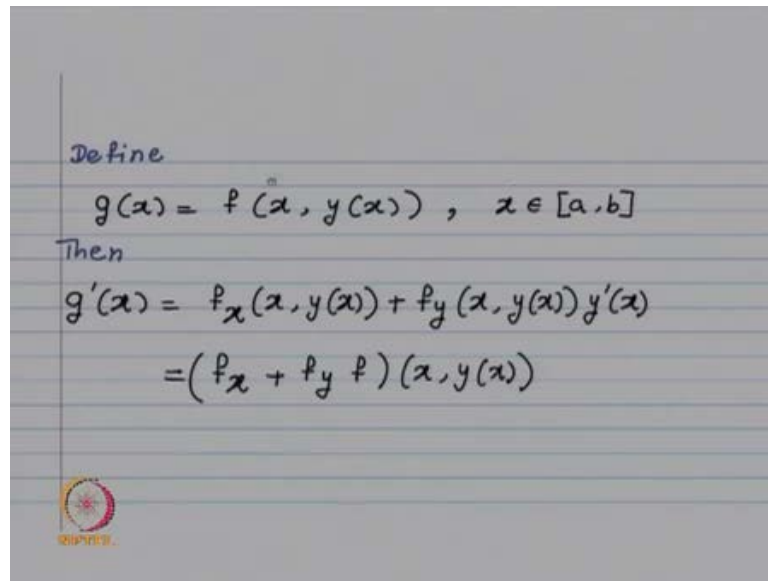 Define
g(x) = f(x, y(x)) , x ∈ [a,b]
Then
g'(x) = f_x(x, y(x)) + f_y(x, y(x)) y'(x)
= (f_x + f_y f)(x, y(x))
NPTEL